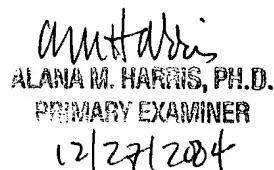 ALANA M. HARRIS, PH.D.
PRIMARY EXAMINER
12/27/2004